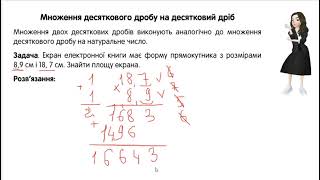 Множення десяткового дробу на десятковий дріб
Множення двох десяткових дробів виконують аналогічно до множення
десяткового дробу на натуральне число.
Задача. Екран електронної книги має форму прямокутника з розмірами
8,9 см і 18, 7 см. Знайти площу екрана.
Розв'язання:
1 18,7
1 × 8,9
2 1683
+ 1496
16643